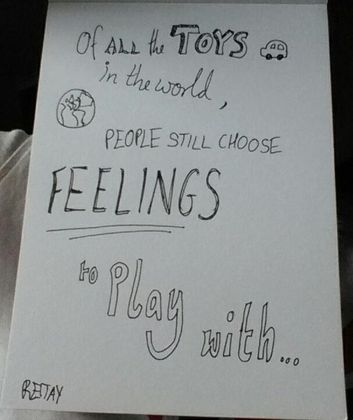 Of ALL the TOYS
in the world,
PEOPLE STILL CHOOSE
FEELINGS
to Play
with...
RETAY